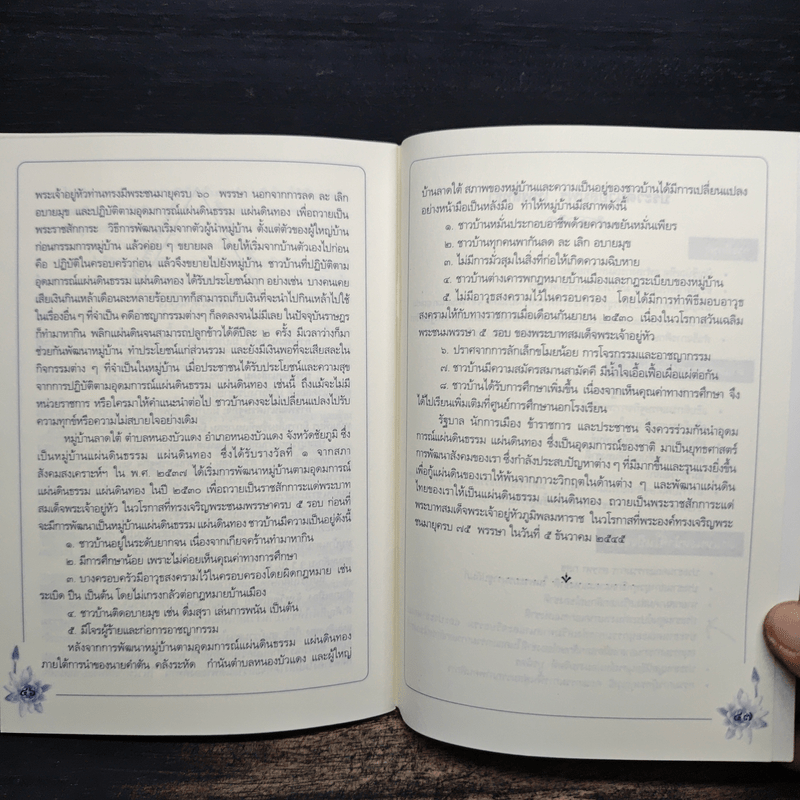 พระเจ้าอยู่หัวท่านทรงมีพระชนมายุครบ ๖๐ พรรษา นอกจากการลด ละ เลิก
อบายมุข และปฏิบัติตามอุดมการณ์แผ่นดินธรรม แผ่นดินทอง เพื่อถวายเป็น
พระราชสักการะ วิธีการพัฒนาเริ่มจากตัวผู้นำหมู่บ้าน ตั้งแต่ตัวของผู้ใหญ่บ้าน
กรรมการหมู่บ้าน แล้วค่อย ๆ ขยายผล โดยให้เริ่มจากบ้านตัวเองไปก่อน
คือ ปฏิบัติในครอบครัวก่อน แล้วจึงขยายไปยังหมู่บ้าน ชาวบ้านที่ปฏิบัติตาม
อุดมการณ์แผ่นดินธรรม แผ่นดินทอง ได้รับประโยชน์มาก อย่างเช่น บางคนเคย
เสียเงินกินเหล้าเดือนละหลายร้อยบาทก็สามารถเก็บเงินที่จะนำไปกินเหล้าไปใช้
ในเรื่องอื่น ๆ ที่จำเป็น คดีอาชญากรรมต่างๆ ก็ลดลงจนไม่มีเลย ในปัจจุบันราษฎร
ก็ทำมาหากิน พลิกแผ่นดินจนสามารถปลูกข้าวได้ดีปีละ ๒ ครั้ง มีเวลาว่างก็มา
ช่วยกันพัฒนาหมู่บ้าน ทำประโยชน์แก่ส่วนรวม และยังมีเงินพอที่จะเสียสละใน
กิจกรรมต่าง ๆ ที่จำเป็นในหมู่บ้าน เมื่อประชาชนได้รับประโยชน์และความสุข
จากการปฏิบัติตามอุดมการณ์แผ่นดินธรรม แผ่นดินทอง เช่นนี้ ถึงแม้จะไม่มี
หน่วยราชการ หรือใครมาให้คำแนะนำต่อไป ชาวบ้านคงจะไม่เปลี่ยนแปลงไปรับ
ความทุกข์หรือความไม่สบายใจอย่างเดิม
หมู่บ้านลาดใต้ ตำบลหนองบัวแดง อำเภอหนองบัวแดง จังหวัดชัยภูมิ ซึ่ง
เป็นหมู่บ้านแผ่นดินธรรม แผ่นดินทอง ซึ่งได้รับรางวัลที่ ๑ จากสภา
สังคมสงเคราะห์ฯ ใน พ.ศ. ๒๕๓๗ ได้เริ่มการพัฒนาหมู่บ้านตามอุดมการณ์
แผ่นดินธรรม แผ่นดินทอง ในปี ๒๕๓๐ เพื่อถวายเป็นราชสักการะแด่พระบาท
สมเด็จพระเจ้าอยู่หัว ในวโรกาสที่ทรงเจริญพระชนมพรรษาครบ ๕ รอบ ก่อนที่
จะมีการพัฒนาเป็นหมู่บ้านแผ่นดินธรรม แผ่นดินทอง ชาวบ้านมีความเป็นอยู่ดังนี้
๑. ชาวบ้านอยู่ในระดับยากจน เนื่องจากเกียจคร้านทำมาหากิน
๒. มีการศึกษาน้อย เพราะไม่ค่อยเห็นคุณค่าทางการศึกษา
๓. บางครอบครัวมีอาวุธสงครามไว้ในครอบครองโดยผิดกฎหมาย เช่น
ระเบิด ปืน เป็นต้น โดยไม่เกรงกลัวต่อกฎหมายบ้านเมือง
๔. ชาวบ้านติดอบายมุข เช่น ดื่มสุรา เล่นการพนัน เป็นต้น
๕. มีโจรผู้ร้ายและก่อการอาชญากรรม
หลังจากการพัฒนาหมู่บ้านตามอุดมการณ์ แผ่นดินธรรม แผ่นดินทอง
ภายใต้การนำของนายคำตัน คลังระหัด กำนันตำบลหนองบัวแดง และผู้ใหญ่
๕๖
บ้านลาดใต้ สภาพของหมู่บ้านและความเป็นอยู่ของชาวบ้านได้มีการเปลี่ยนแปลง
อย่างหน้ามือเป็นหลังมือ ทำให้หมู่บ้านมีสภาพดังนี้
๑. ชาวบ้านหมั่นประกอบอาชีพด้วยความขยันหมั่นเพียร
๒. ชาวบ้านทุกคนพากันลด ละ เลิก อบายมุข
๓. ไม่มีการมั่วสุมในสิ่งที่ก่อให้เกิดความฉิบหาย
๔. ชาวบ้านต่างเคารพกฎหมายบ้านเมืองและกฎระเบียบของหมู่บ้าน
๕. ไม่มีอาวุธสงครามไว้ในครอบครอง โดยได้มีการทำพิธีมอบอาวุธ
สงครามให้กับทางราชการเมื่อเดือนกันยายน ๒๕๓๐ เนื่องในวโรกาสวันเฉลิม
พระชนมพรรษา ๕ รอบ ของพระบาทสมเด็จพระเจ้าอยู่หัว
๖. ปราศจากการลักเล็กขโมยน้อย การโจรกรรมและอาชญากรรม
๗. ชาวบ้านมีความสมัครสมานสามัคคี มีน้ำใจเอื้อเฟื้อเผื่อแผ่ต่อกัน
๘. ชาวบ้านได้รับการศึกษาเพิ่มขึ้น เนื่องจากเห็นคุณค่าทางการศึกษา จึง
ได้ไปเรียนเพิ่มเติมที่ศูนย์การศึกษานอกโรงเรียน
รัฐบาล นักการเมือง ข้าราชการ และประชาชน จึงควรร่วมกันนำอุดม
การณ์แผ่นดินธรรม แผ่นดินทอง ซึ่งเป็นอุดมการณ์ของชาติ มาเป็นยุทธศาสตร์
การพัฒนาสังคมของเรา ซึ่งกำลังประสบปัญหาต่าง ๆ ที่มีมากขึ้นและรุนแรงยิ่งขึ้น
เพื่อกู้แผ่นดินของเราให้พ้นจากภาวะวิกฤตในด้านต่าง ๆ และพัฒนาแผ่นดิน
ไทยของเราให้เป็นแผ่นดินธรรม แผ่นดินทอง ถวายเป็นพระราชสักการะแด่
พระบาทสมเด็จพระเจ้าอยู่หัวภูมิพลมหาราช ในวโรกาสที่พระองค์ทรงเจริญพระ
ชนมายุครบ ๗๕ พรรษา ในวันที่ ๕ ธันวาคม ๒๕๔๕
๕๗